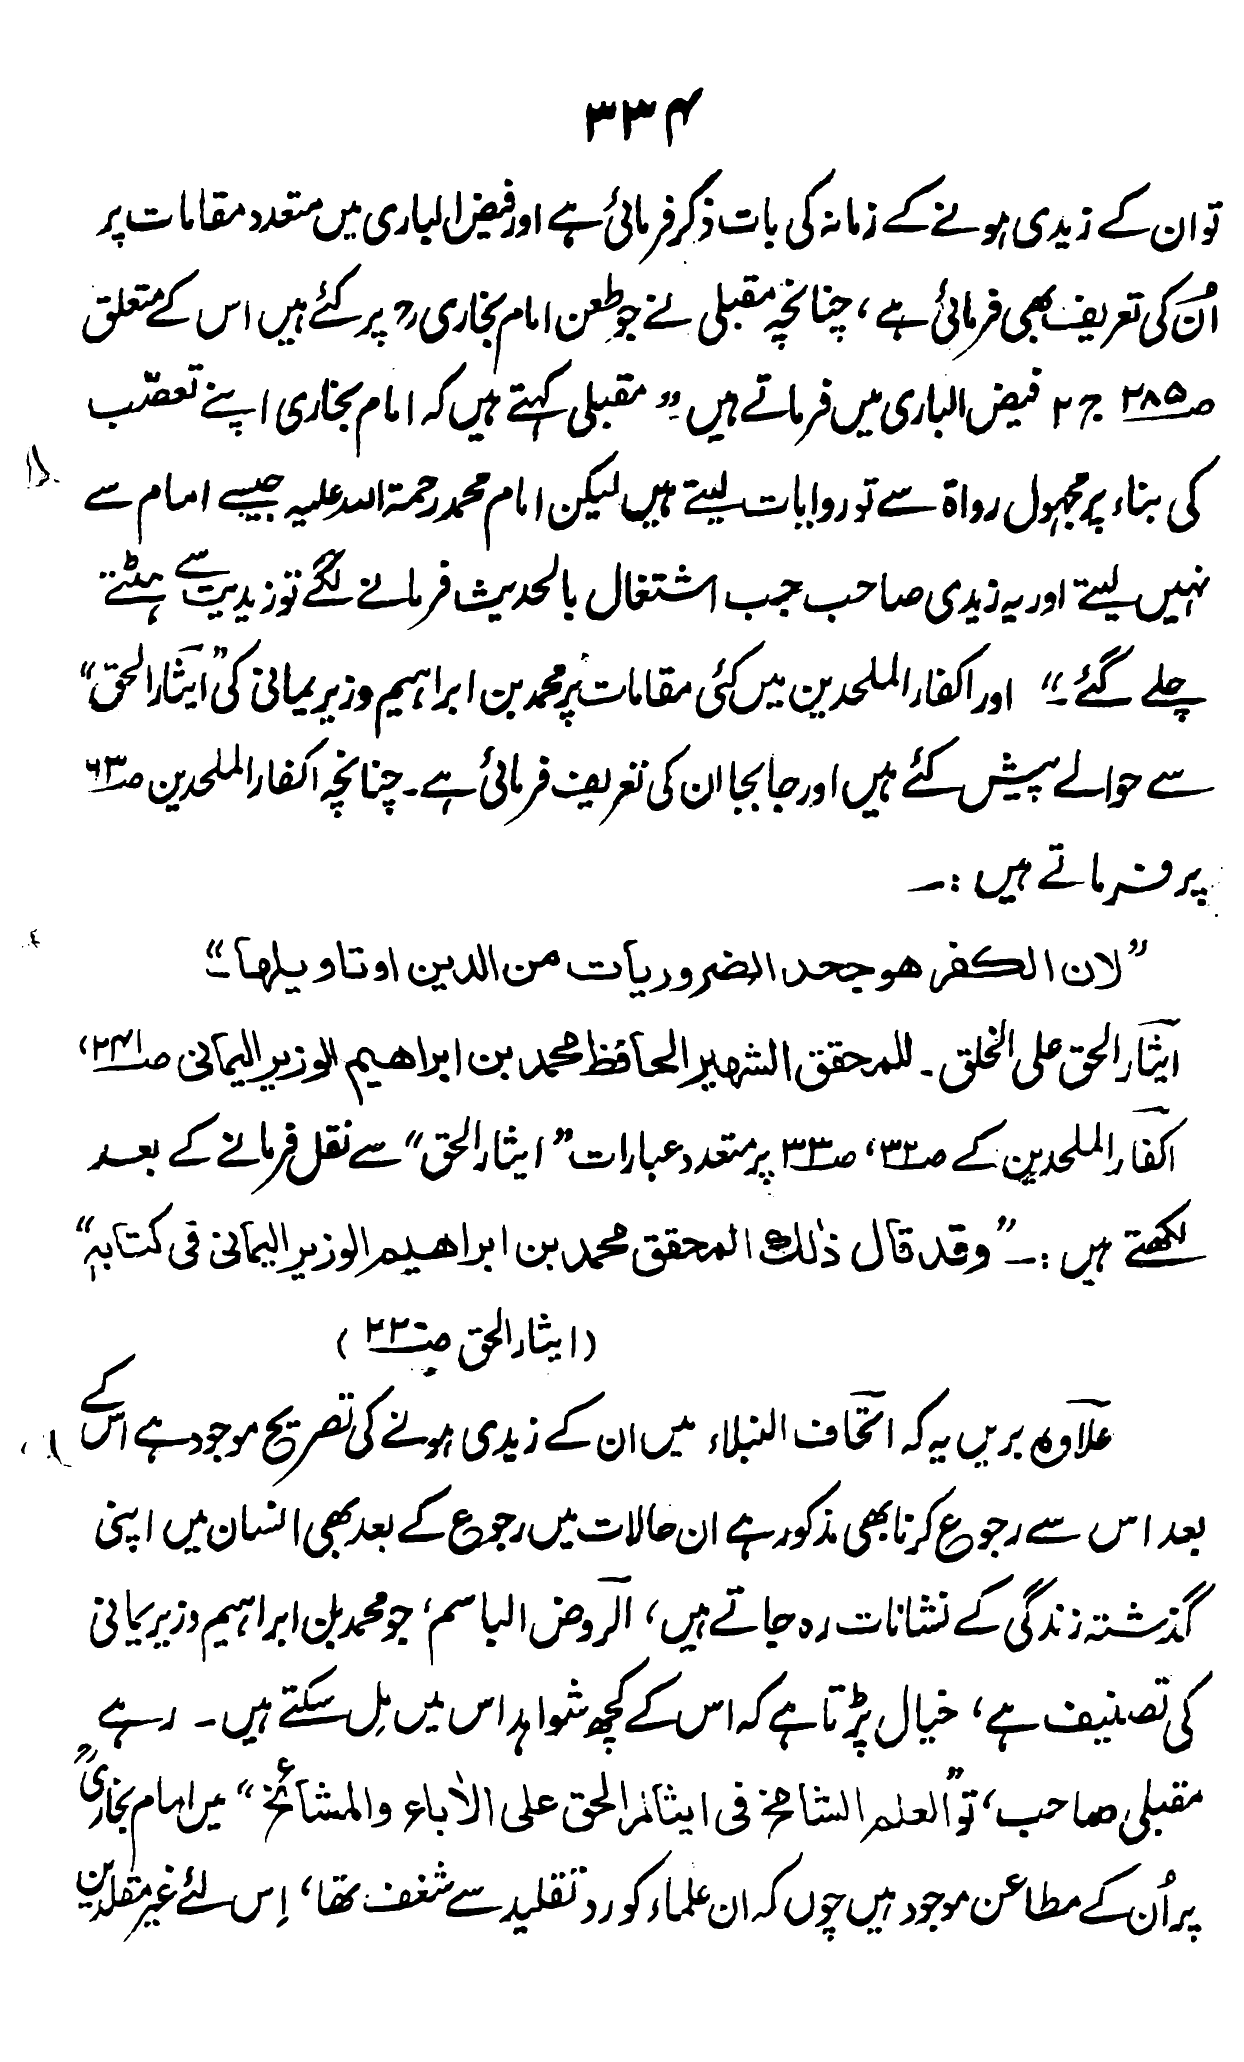 ۳۳۴
تو ان کے زیدی ہونے کے زمانہ کی بات ذکر فرمائی ہے اور فیض الباری میں متعدد مقامات پر
اُن کی تعریف بھی فرمائی ہے، چنانچہ مقبلی نے جو طعن امام بخاری رح پر کئے ہیں اس کے متعلق
صـ۲۸۵ ج۲ فیض الباری میں فرماتے ہیں ”مقبلی کہتے ہیں کہ امام بخاری اپنے تعصّب
کی بناء پر مجہول رواۃ سے تو روایات لیتے ہیں لیکن امام محمد رحمۃ اللہ علیہ جیسے امام سے
نہیں لیتے اور یہ زیدی صاحب جب اشتغال بالحدیث فرمانے لگے تو زیدیت سے ہٹتے
چلے گئے۔“ اور اکفار الملحدین میں کئی مقامات پر محمد بن ابراہیم وزیر یمانی کی ”ایثار الحق“
سے حوالے پیش کئے ہیں اور جابجا ان کی تعریف فرمائی ہے۔ چنانچہ اکفار الملحدین صـ۶۳
پر فرماتے ہیں :۔
”لان الکفر هو جحد الضروریات من الدین او تاویلها۔“
ایثار الحق علی الخلق۔ للمحقق الشهیر الحافظ محمد بن ابراهیم الوزیر الیمانی صـ۲۴۱،
اکفار الملحدین کے صـ۳۲، صـ۳۳ پر متعدد عبارات ”ایثار الحق“ سے نقل فرمانے کے بعد
لکھتے ہیں :۔ ”وقد قال ذٰلک المحقق محمد بن ابراهیم الوزیر الیمانی فی کتابہٖ“
(ایثار الحق صـ۲۲۰)
علاوہ بریں یہ کہ اتحاف النبلاء میں ان کے زیدی ہونے کی تصریح موجود ہے اس کے
بعد اس سے رجوع کرنا بھی مذکور ہے ان حالات میں رجوع کے بعد بھی انسان میں اپنی
گذشتہ زندگی کے نشانات رہ جاتے ہیں، الروض الباسم، جو محمد بن ابراہیم وزیر یمانی
کی تصنیف ہے، خیال پڑتا ہے کہ اس کے کچھ شواہد اس میں مل سکتے ہیں۔ رہے
مقبلی صاحب، تو ”العلم الشامخ فی ایثار الحق علی الاٰباء والمشائخ“ میں امام بخاریؒ
پر اُن کے مطاعن موجود ہیں چوں کہ ان علماء کو رد تقلید سے شغف تھا، اِس لئے غیر مقلدین